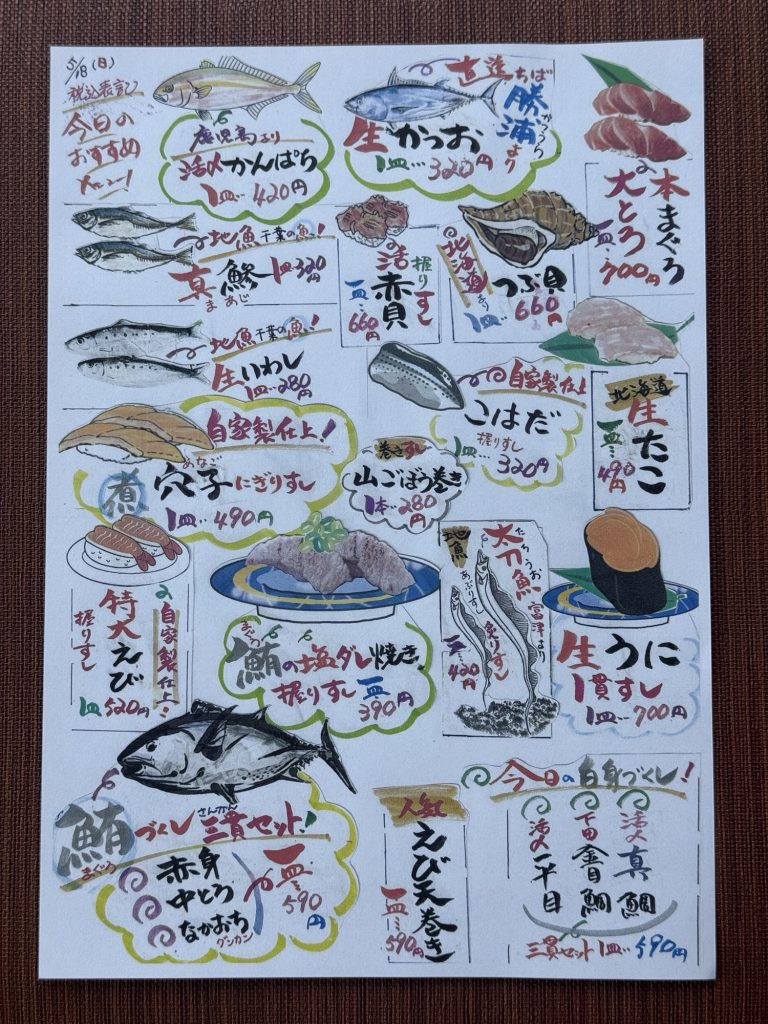 5/18(日)
税込表記
今日の
おすすめ
メニュー!
鹿児島より
活〆かんぱち
1皿…420円
直送ちば
勝浦より
かつうら
生かつお
1皿…320円
本まぐろ
大とろ
一皿…700円
地魚千葉の魚!
真鯵
まあじ
1皿320円
活赤貝
握りすし
一皿…660円
北海道より
つぶ貝
1皿…660円
地魚千葉の魚!
生いわし
1皿…280円
自家製仕上
こはだ
握りすし
1皿…320円
北海道
生たこ
一皿…490円
自家製仕上!
あなご
煮穴子にぎりすし
1皿…490円
巻きすし
山ごぼう巻き
1本…280円
自家製仕上!
特大えび
握りすし
1皿520円
まぐろ
鮪の塩ダレ焼き
握りすし一皿
390円
地魚
太刀魚
たちうお
富津より
炙りすし
あぶりすし
一皿…420円
生うに
1貫すし
1皿…700円
さんかん
鮪づくし三貫セット!
まぐろ
赤身
中とろ
なかおち
グンカン
一皿…590円
人気
えび天巻き
一皿…590円
今日の白身づくし!
活〆真鯛
下田金目鯛
活〆平目
三貫セット1皿…590円